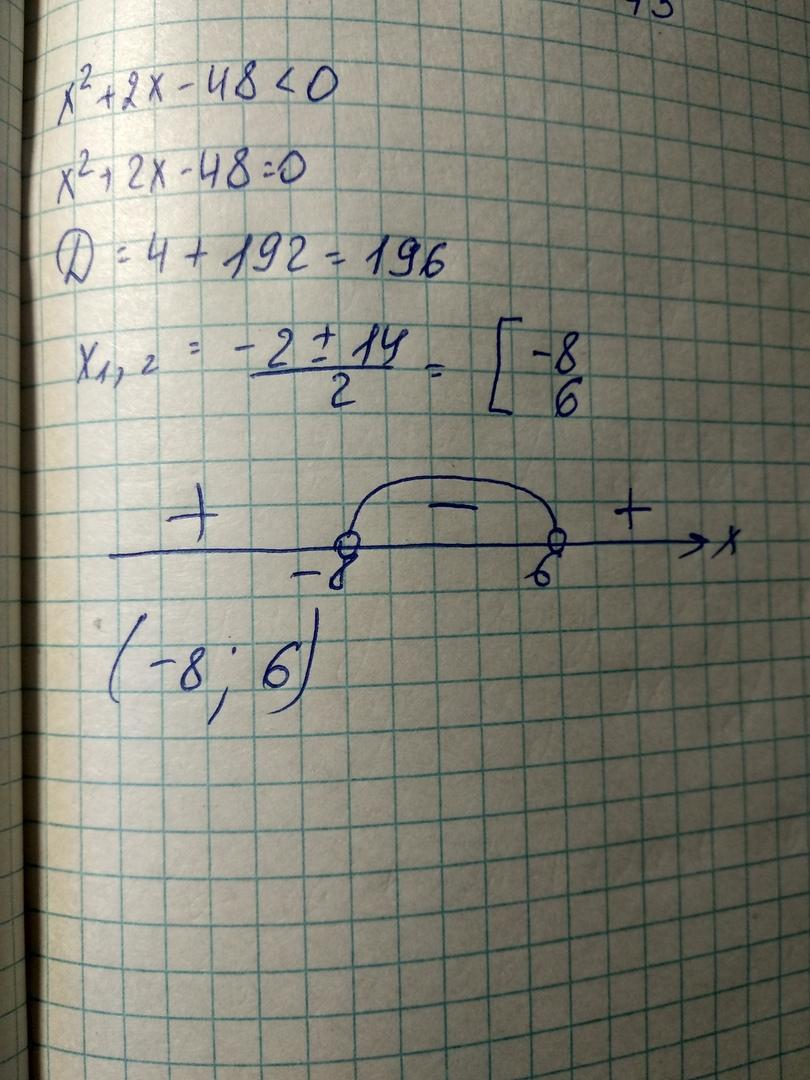 x²+2x-48<0
x²+2x-48=0
D=4+192=196
x₁,₂ = (-2±14)/2 = [-8 6
+ − +
-8 6 x
(-8; 6)